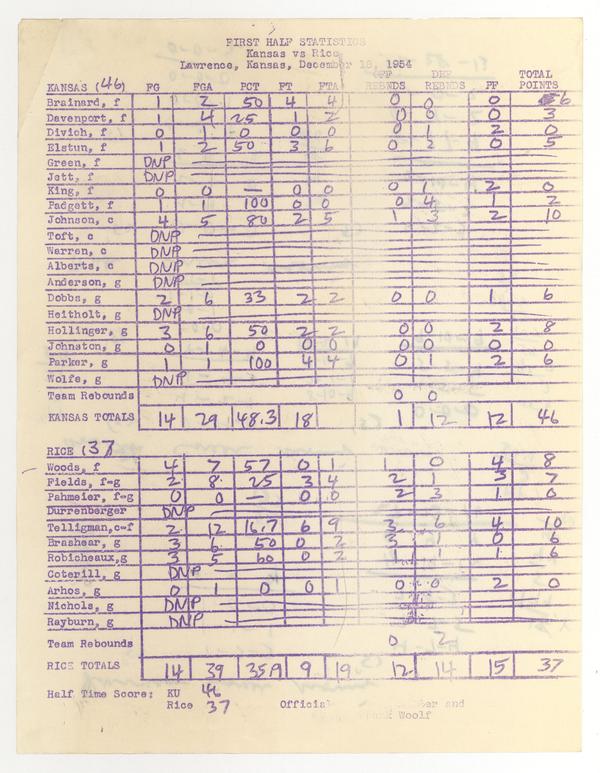 FIRST HALF STATISTICS
Kansas vs Rice
Lawrence, Kansas, December 18, 1954
KANSAS (46) FG FGA PCT FT FTA OFF REBNDS DEF REBNDS PF TOTAL POINTS
Brainard, f 1 2 50 4 4 0 0 0 6
Davenport, f 1 4 25 1 2 0 0 0 3
Divich, f 0 1 0 0 0 0 1 2 0
Elstun, f 1 2 50 3 6 0 2 0 5
Green, f DNP
Jett, f DNP
King, f 0 0 — 0 0 0 1 2 0
Padgett, f 1 1 100 0 0 0 4 1 2
Johnson, c 4 5 80 2 5 1 3 2 10
Toft, c DNP
Warren, c DNP
Alberts, c DNP
Anderson, g DNP
Dobbs, g 2 6 33 2 2 0 0 1 6
Heitholt, g DNP
Hollinger, g 3 6 50 2 2 0 0 2 8
Johnston, g 0 1 0 0 0 0 0 0 0
Parker, g 1 1 100 4 4 0 1 2 6
Wolfe, g DNP
Team Rebounds 0 0
KANSAS TOTALS 14 29 48.3 18 1 12 12 46
RICE (37)
Woods, f 4 7 57 0 1 1 0 4 8
Fields, f-g 2 8 25 3 4 2 1 3 7
Pahmeier, f-g 0 0 — 0 0 2 3 1 0
Durrenberger DNP
Telligman, c-f 2 12 16.7 6 9 3 6 4 10
Brashear, g 3 6 50 0 2 3 1 0 6
Robicheaux, g 3 5 60 0 2 1 1 1 6
Coterill, g DNP
Arhos, g 0 1 0 0 1 0 0 2 0
Nichols, g DNP
Rayburn, g DNP
Team Rebounds 0 2
RICE TOTALS 14 39 35.9 9 19 12 14 15 37
Half Time Score: KU 46
Rice 37 Official and
Woolf